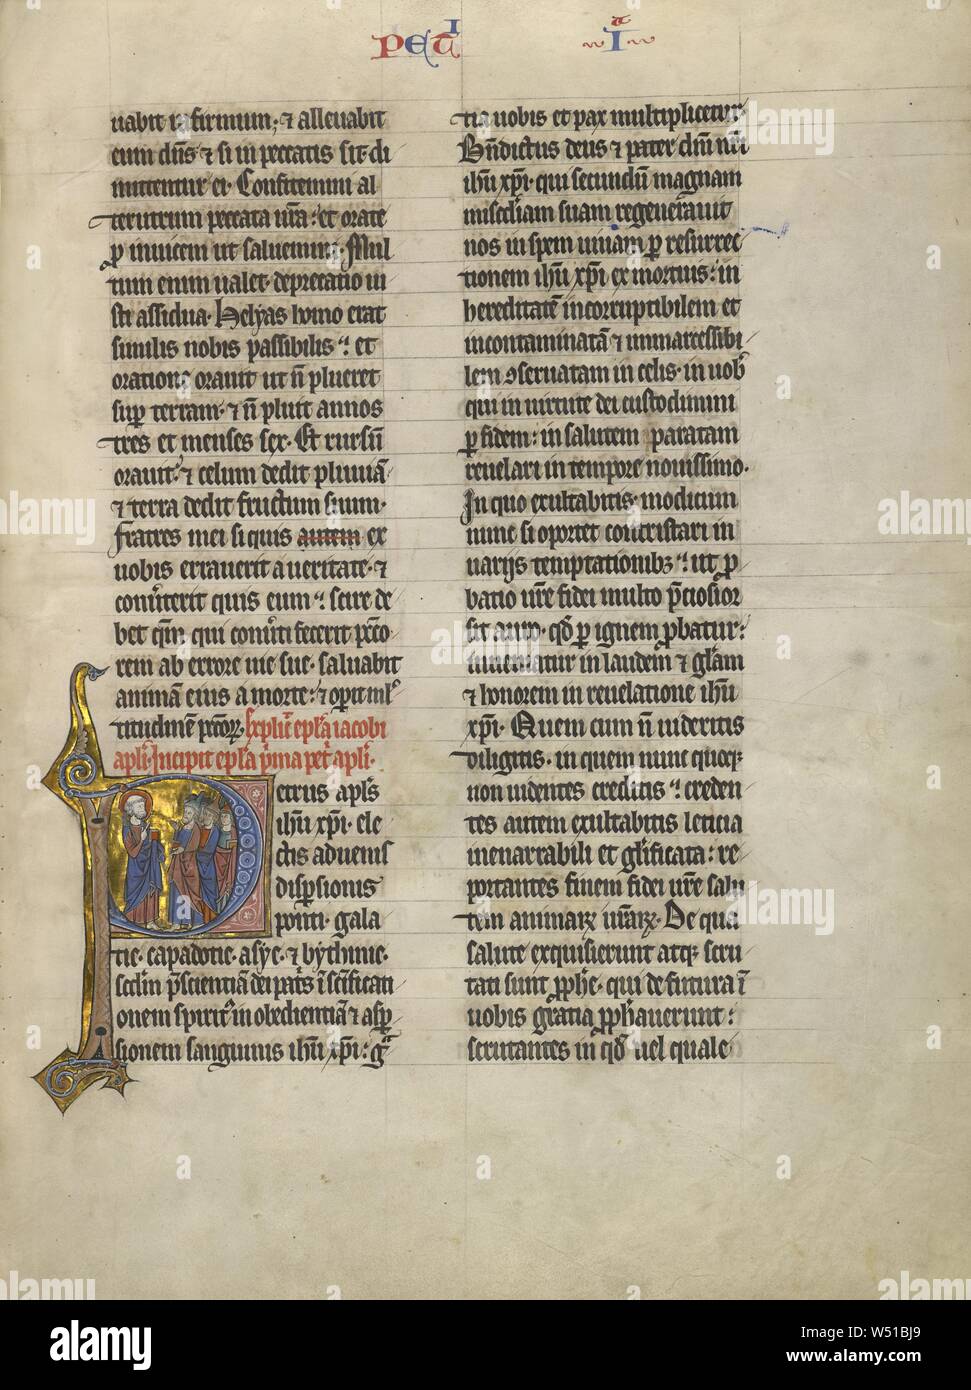 PETI I
uabit infirmum; ⁊ alleuabit
eum dn̄s ⁊ si in peccatis sit di
mittentur ei. Confitemini al
terutrum peccata ur̄a: et orate
ꝑ inuicem ut saluemini. Mul
tum enim ualet deprecatio iu
sti assidua. Helyas homo erat
similis nobis passibilis: et
oratione orauit ut n̄ plueret
suꝑ terram. ⁊ n̄ pluit annos
tres et menses sex. Et rursū
orauit: ⁊ celum dedit pluuiā
⁊ terra dedit fructum suum.
Fratres mei si quis autem ex
uobis errauerit a ueritate. ⁊
conu̾terit quis eum: scire de
bet qm̄ qui conu̾ti fecerit pcc̄o
rem ab errore uie sue. saluabit
animā eius a morte: ⁊ operit ml̾
titudinē pcc̄oꝝ. Explic̄ epl̄a iacobi
apl̄i. Incipit epl̄a p̾ma pet̾ apl̄i.
etrus apl̄s
ihū xp̄i. ele
ctis aduenis
disp̾sionis
ponti. gala
tie. capadotie. asye. ⁊ bythinie.
scd̄m p̄scientiā dei pat̾s ī sc̄ificati
onem spirit̾ in obedientiā ⁊ asꝑ
sionem sanguinis ihū xp̄i: gr̄a
tia uobis et pax multiplicetur.
Bn̄dictus deus ⁊ pater dn̄i nr̄i
ihū xp̄i. qui secundū magnam
mis̄c̄diam suam regenerauit
nos in spem uiuam ꝑ resurrec
tionem ihū xp̄i ex mortuis: in
hereditatē incorruptibilem et
incontaminatā ⁊ immarcessibi
lem ꝯseruatam in celis. in uob̾
qui in uirtute dei custodimini
ꝑ fidem: in salutem paratam
reuelari in tempore nouissimo.
In quo exultabitis. modicum
nunc si oportet contristari in
uarijs temptationibꝫ: ut ꝓ
batio ur̄e fidei multo p̄ciosior
sit auro. qđ ꝑ ignem ꝓbatur:
inueniatur in laudem ⁊ gl̄am
⁊ honorem in reuelatione ihū
xp̄i. Quem cum n̄ uideritis
diligitis. in quem nunc quoqꝫ
non uidentes creditis: creden
tes autem exultabitis leticia
inenarrabili et gl̄ificata: re
portantes finem fidei ur̄e salu
tem animaꝝ ur̄aꝝ. De qua
salute exquisierunt atqꝫ scru
tati sunt ꝓphe. qui de futura ī
uobis gratia ꝓph̄auerunt:
scrutantes in qđ uel quale
a alamy
alamy
Image ID: W51BJ9
www.alamy.com